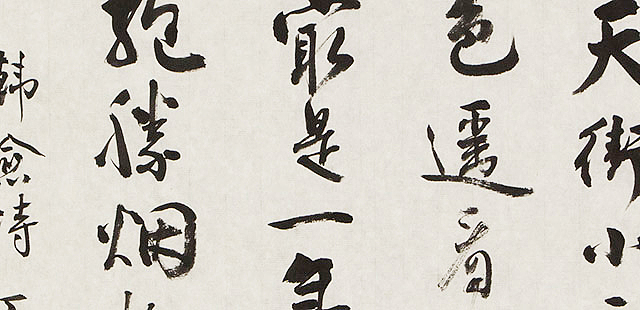 天街小
色遙看
最是一年
絕勝烟
韓愈詩